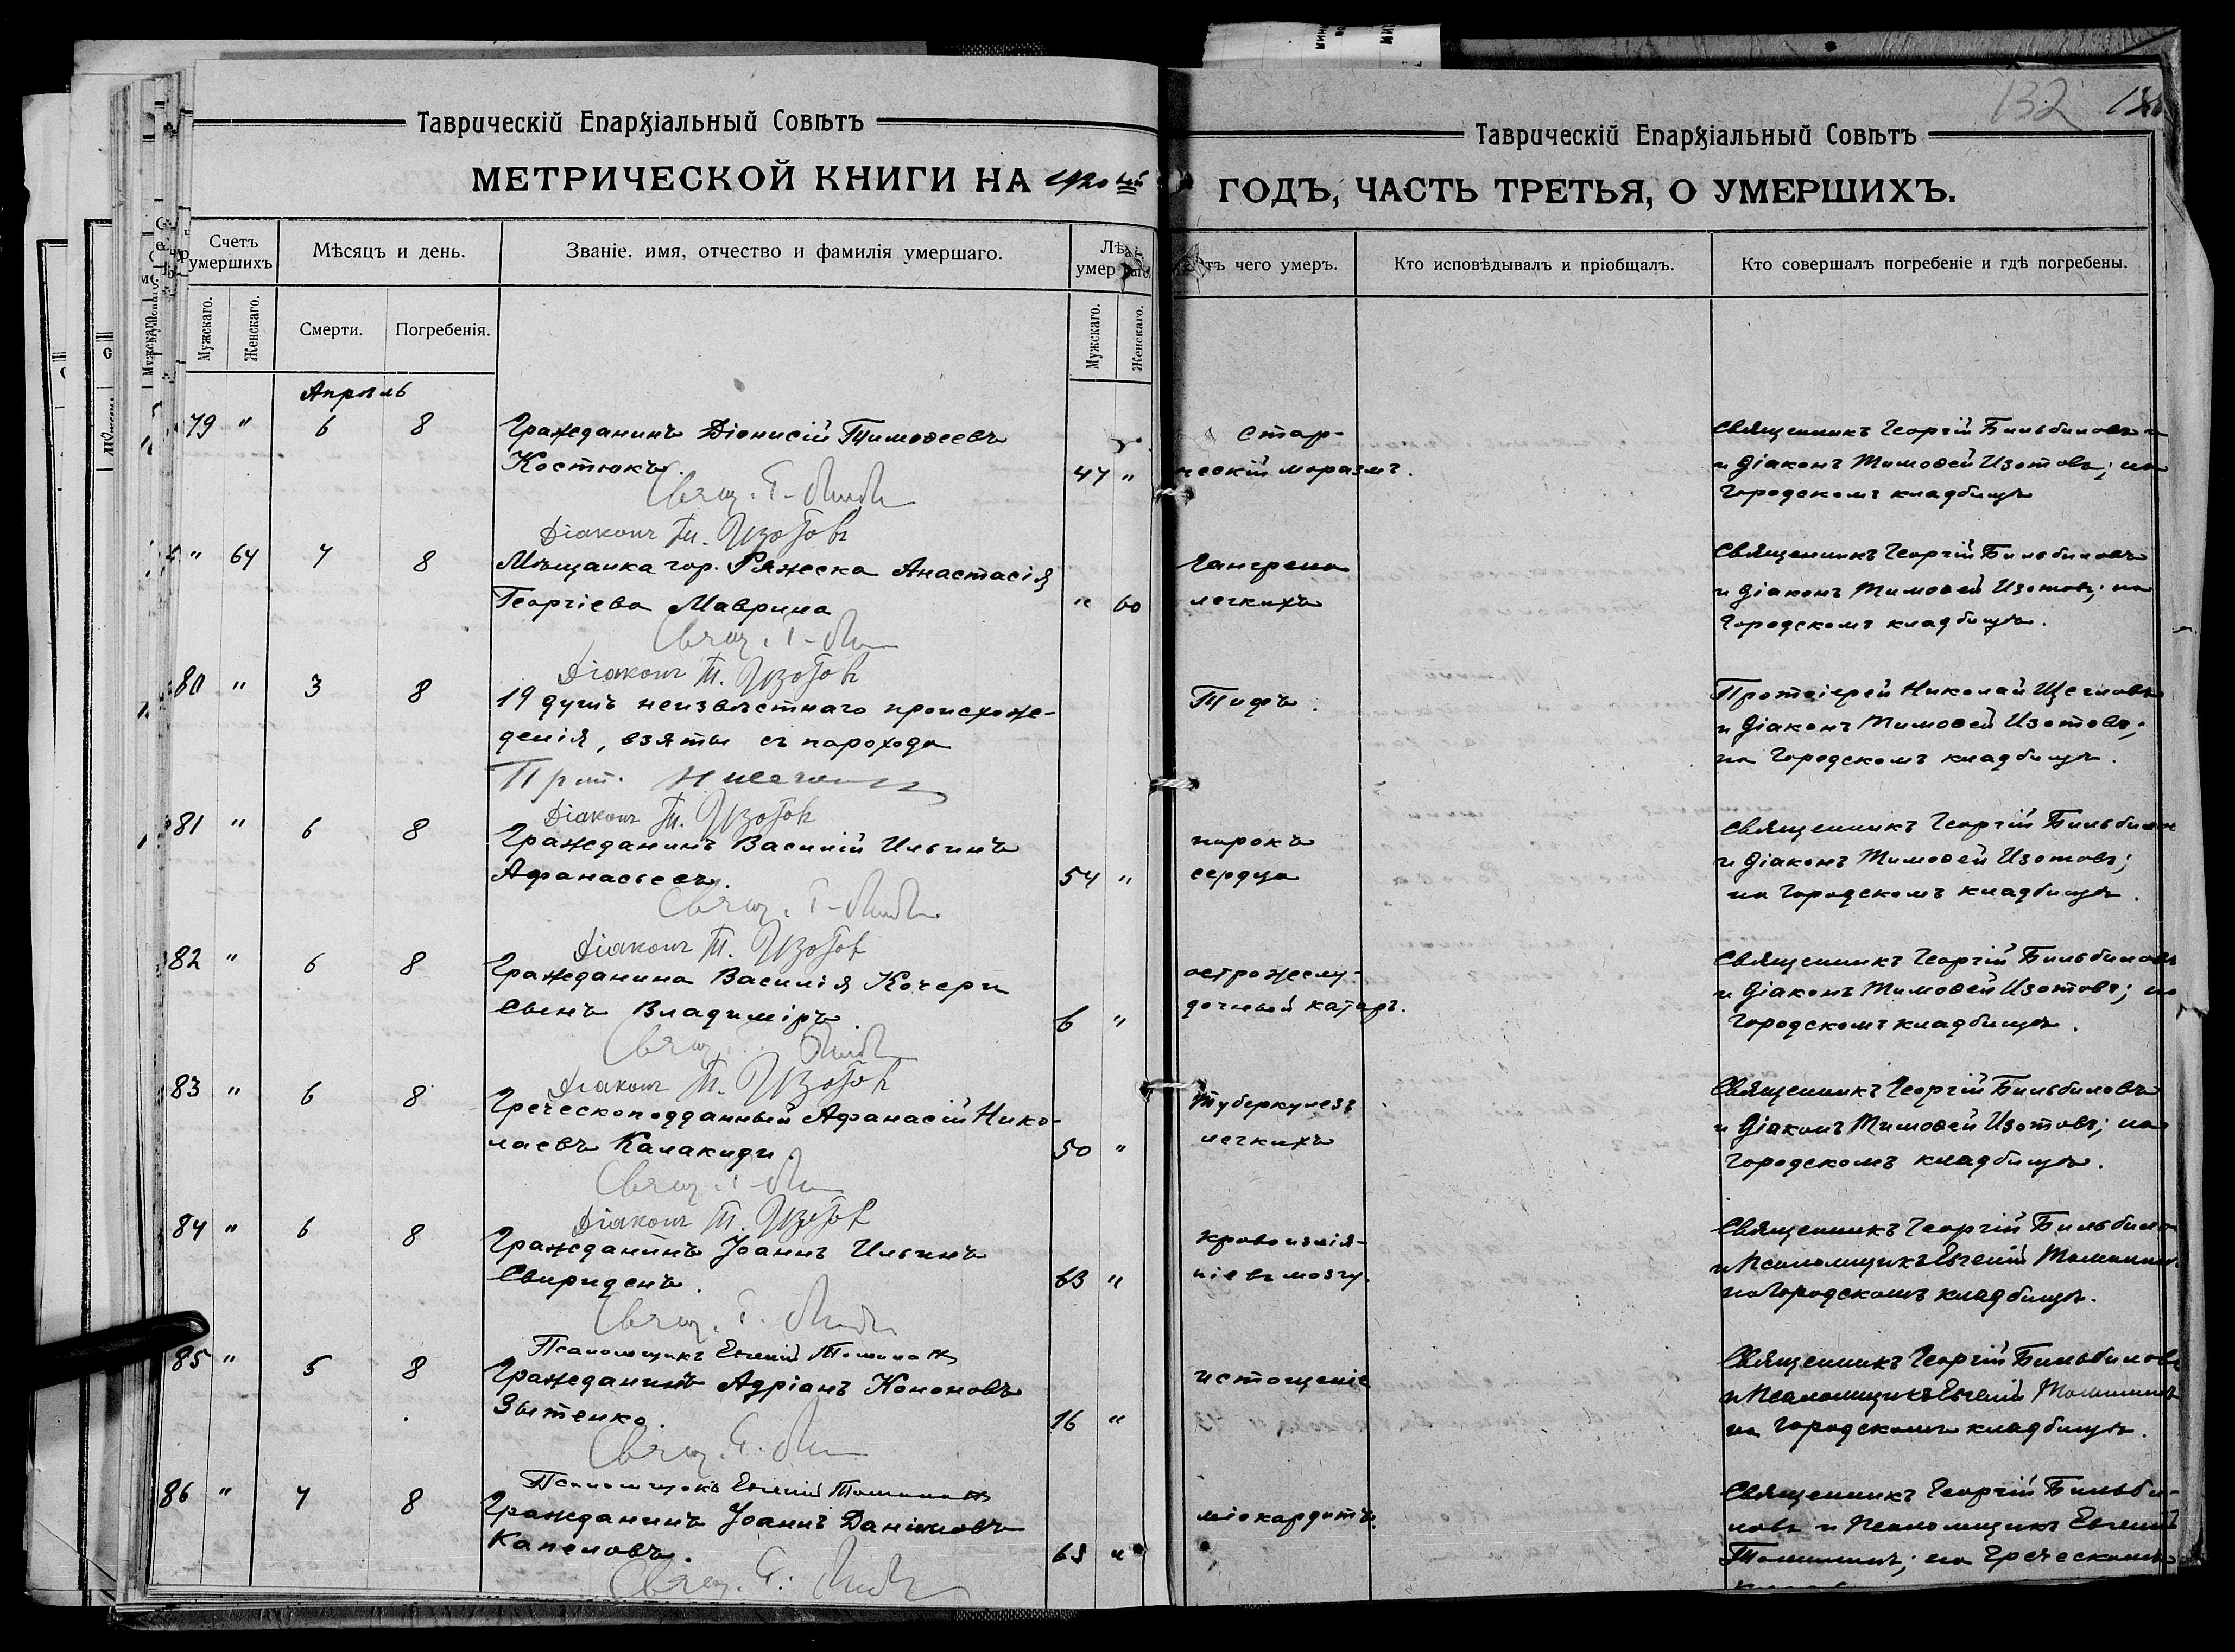 132
Таврическій Епархіальный Совѣтъ
Таврическій Епархіальный Совѣтъ
МЕТРИЧЕСКОЙ КНИГИ НА 1920 ый
ГОДЪ, ЧАСТЬ ТРЕТЬЯ, О УМЕРШИХЪ.
Счетъ умершихъ
Мѣсяцъ и день.
Званіе, имя, отчество и фамилія умершаго.
Лѣта умершаго
Отъ чего умеръ.
Кто исповѣдывалъ и пріобщалъ.
Кто совершалъ погребеніе и гдѣ погребены.
Мужскаго.
Женскаго.
Смерти.
Погребенія.
Мужскаго.
Женскаго.
Апрѣль
79 " 6 8
Гражданинъ Діонисій Тимоѳеевъ
Костюкъ.
47 "
Стар-
ческій моразмъ.
Священникъ Георгій Бильбиловъ
и Діаконъ Тимоѳей Изотовъ; на
Городскомъ кладбищѣ
Свящ. Г.
Діаконъ Т. Изотовъ
" 64 7 8
Мѣщанка гор. Ряжска Анастасія
Георгіева Маврина
" 60
Гангрена
легкихъ
Священникъ Георгій Бильбиловъ
и Діаконъ Тимоѳей Изотовъ; на
Городскомъ кладбищѣ.
Свящ. Г.
Діаконъ Т. Изотовъ
80 " 3 8
19 душъ неизвѣстнаго происхож-
денія, взяты съ парохода
Тифъ.
Протоіерей Николай Щегловъ
и Діаконъ Тимоѳей Изотовъ;
на Городскомъ кладбищѣ.
Прот. Н
Діаконъ Т. Изотовъ
81 " 6 8
Гражданинъ Василій Ильинъ
Афанасьевъ.
54 "
порокъ
сердца
Священникъ Георгій Бильбиловъ
и Діаконъ Тимоѳей Изотовъ;
на Городскомъ кладбищѣ.
Свящ. Г.
Діаконъ Т. Изотовъ
82 " 6 8
Гражданина Василія Кочери
сынъ Владиміръ.
6 "
острожелу-
дочный катаръ.
Священникъ Георгій Бильбиловъ
и Діаконъ Тимоѳей Изотовъ; на
Городскомъ кладбищѣ.
Свящ.
Діаконъ Т. Изотовъ
83 " 6 8
Греческоподданный Афанасій Нико-
лаевъ Калакиди.
50 "
Туберкулезъ
легкихъ
Священникъ Георгій Бильбиловъ
и Діаконъ Тимоѳей Изотовъ; на
Городскомъ кладбищѣ.
Свящ. Г.
Діаконъ Т. Изотовъ
84 " 6 8
Гражданинъ Іоаннъ Ильинъ
Свириденъ.
63 "
кровоизлія-
ніе въ мозгу.
Священникъ Георгій Бильбиловъ
и Псаломщикъ Евгеній
на Городскомъ кладбищѣ.
Свящ. Г.
Псаломщикъ Евгеній
85 " 5 8
Гражданинъ Адріанъ Кононовъ
Зытенко.
16 "
истощеніе
Священникъ Георгій Бильбиловъ
и Псаломщикъ Евгеній
на Городскомъ кладбищѣ.
Свящ. Г.
Псаломщикъ Евгеній
86 " 7 8
Гражданинъ Іоаннъ Даніиловъ
Капеловъ.
63 "
міокардитъ.
Священникъ Георгій Бильби-
ловъ и Псаломщикъ Евгеній
на Греческомъ
Свящ. Г.